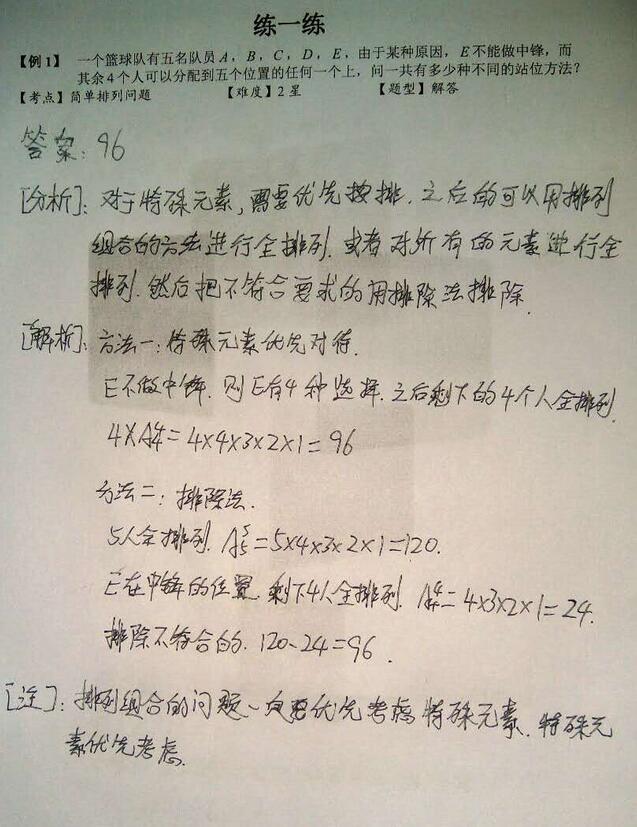 练一练
【例1】 一个篮球队有五名队员A，B，C，D，E，由于某种原因，E不能做中锋，而
其余4个人可以分配到五个位置的任何一个上，问一共有多少种不同的站位方法？
【考点】简单排列问题 【难度】2星 【题型】解答
答案：96
[分析]：对于特殊元素，需要优先按排．之后的可以用排列
组合的方法进行全排列．或者对所有的元素进行全
排列．然后把不符合要求的用排除法排除．
[解析]：方法一：特殊元素优先对待．
E不做中锋．则E有4种选择．之后剩下的4个人全排列．
4×A₄⁴＝4×4×3×2×1＝96
方法二：排除法．
5人全排列．A₅⁵＝5×4×3×2×1＝120．
E在中锋的位置．剩下4人全排列．A₄⁴＝4×3×2×1＝24．
排除不符合的．120-24＝96．
[注]：排列组合的问题一定要优先考虑特殊元素．特殊元
素优先考虑．